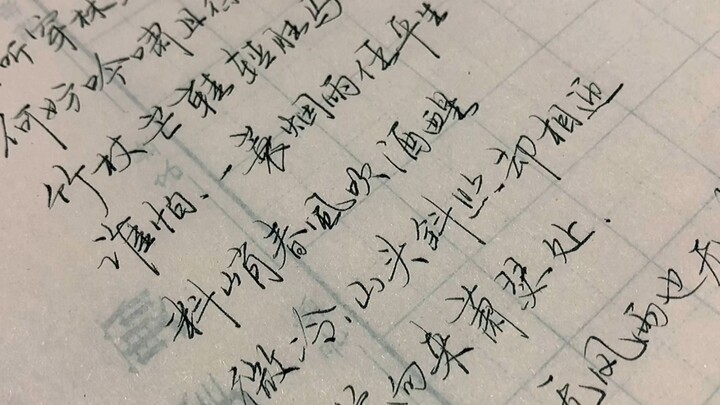 听穿林
何妨吟啸且徐
竹杖芒鞋轻胜马
谁怕.一蓑烟雨任平生
料峭春风吹酒醒
微冷,山头斜照却相迎
向来萧瑟处.
无风雨也无